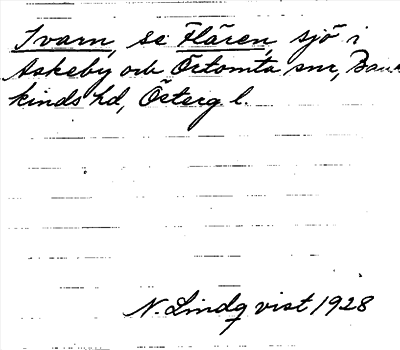 Svarn, se Flären, sjö i
Askeby och Örtomta snr, Bank-
kinds hd, Österg l.
N. Lindqvist 1928